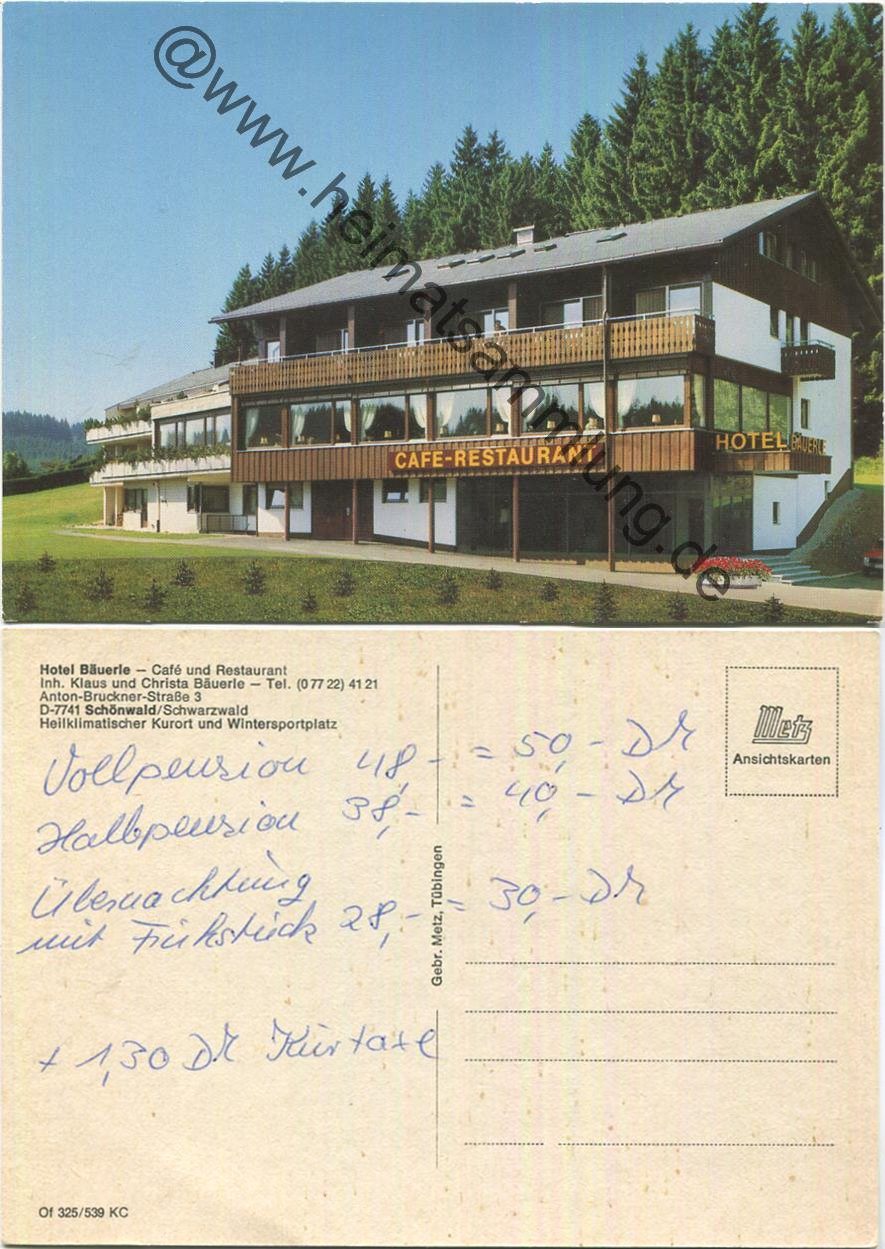 @www.heimatsammlung.de
CAFE-RESTAURANT
HOTEL BÄUERLE
Hotel Bäuerle – Café und Restaurant
Inh. Klaus und Christa Bäuerle – Tel. (0 77 22) 41 21
Anton-Bruckner-Straße 3
D-7741 Schönwald/Schwarzwald
Heilklimatischer Kurort und Wintersportplatz
Metz
Ansichtskarten
Vollpension 48,- = 50,- DM
Halbpension 38,- = 40,- DM
Übernachtung
mit Frühstück 28,- = 30,- DM
+ 1,30 DM Kurtaxe
Gebr. Metz, Tübingen
Of 325/539 KC